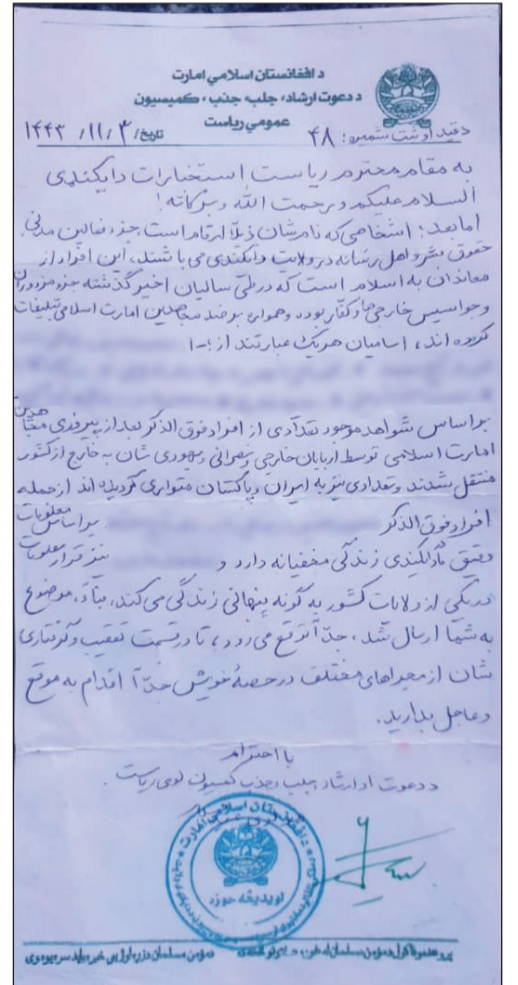 د افغانستان اسلامي امارت
د دعوت ارشاد، جلب، جذب، کمیسیون
عمومي ریاست
د قید او ثبت شمیره: ۴۸
تاریخ/ ۱۴۴۳/۱۱/۳
به مقام محترم ریاست استخبارات دایکندی
السلام علیکم و رحمت الله و برکاته!
اما بعد: اشخاصی که نام شان ذیلاً ارقام است جزء فعالین مدنی،
حقوق بشر و اهل رسانه در ولایت دایکندی می باشند، این افراد از
معاندان به اسلام است که در طی سالیان اخیر گذشته جزء مزدوران
و جواسیس خارجی ها و کفار بوده و همواره بر ضد مجاهدین امارت اسلامی تبلیغات
کرده اند، اسامیان هر یک عبارتند از:-۱
بر اساس شواهد موجود تعدادی از افراد فوق الذکر بعد از پیروزی مجاهدین
امارت اسلامی توسط اربابان خارجی و نصرانی و یهودی شان به خارج از کشور
منتقل شدند و تعدادی نیز به ایران و پاکستان متواری گردیده اند از جمله
افراد فوق الذکر
بر اساس معلومات
دقیق
زندگی مخفیانه دارد و
نیز قرار معلومات
در یکی از ولایات کشور به گونه پنهانی زندگی می کند، بناءً، موضوع
به شما ارسال شد، جداً توقع می رود، تا در قسمت تعقیب و گرفتاری
شان از مجراهای مختلف در حصهٔ خویش جداً اقدام به موقع
و عاجل بدارید.
با احترام
د دعوت او ارشاد، جلب و جذب کمیسیون لوی ریاست.
د افغانستان اسلامي امارت
حوزه